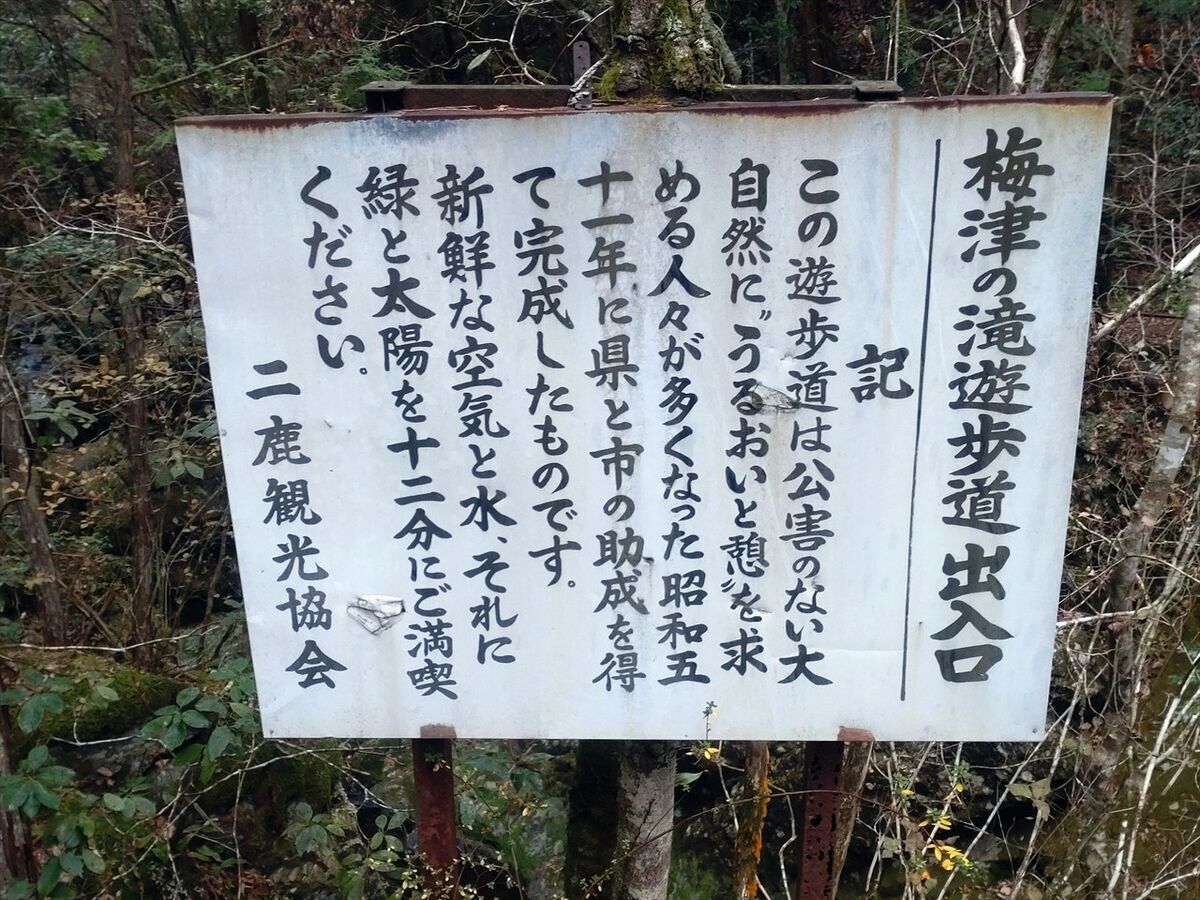 梅津の滝遊歩道出入口
記
この遊歩道は公害のない大
自然に〝うるおいと憩〟を求
める人々が多くなった昭和五
十一年に県と市の助成を得
て完成したものです。
新鮮な空気と水、それに
緑と太陽を十二分にご満喫
ください。
二鹿観光協会